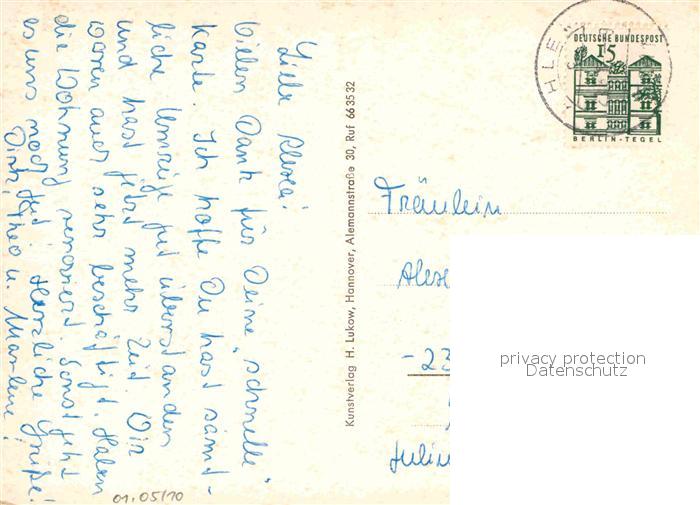 Liebe
Vielen Dank für Deine „schnelle“
Karte. Ich hoffe Du hast sämt-
liche Umzüge gut überstanden
und hast jetzt mehr Zeit. Wir
waren auch sehr beschäftigt. Haben
die Wohnung renoviert. Sonst geht
es uns noch gut. Herzliche Grüße!
Theo u. Marlene!
01.05/10
Kunstverlag H. Lukow, Hannover, Alemannstraße 30, Ruf 66 35 32
DEUTSCHE BUNDESPOST
15
BERLIN-TEGEL
Fräulein
-23
privacy protection
Datenschutz